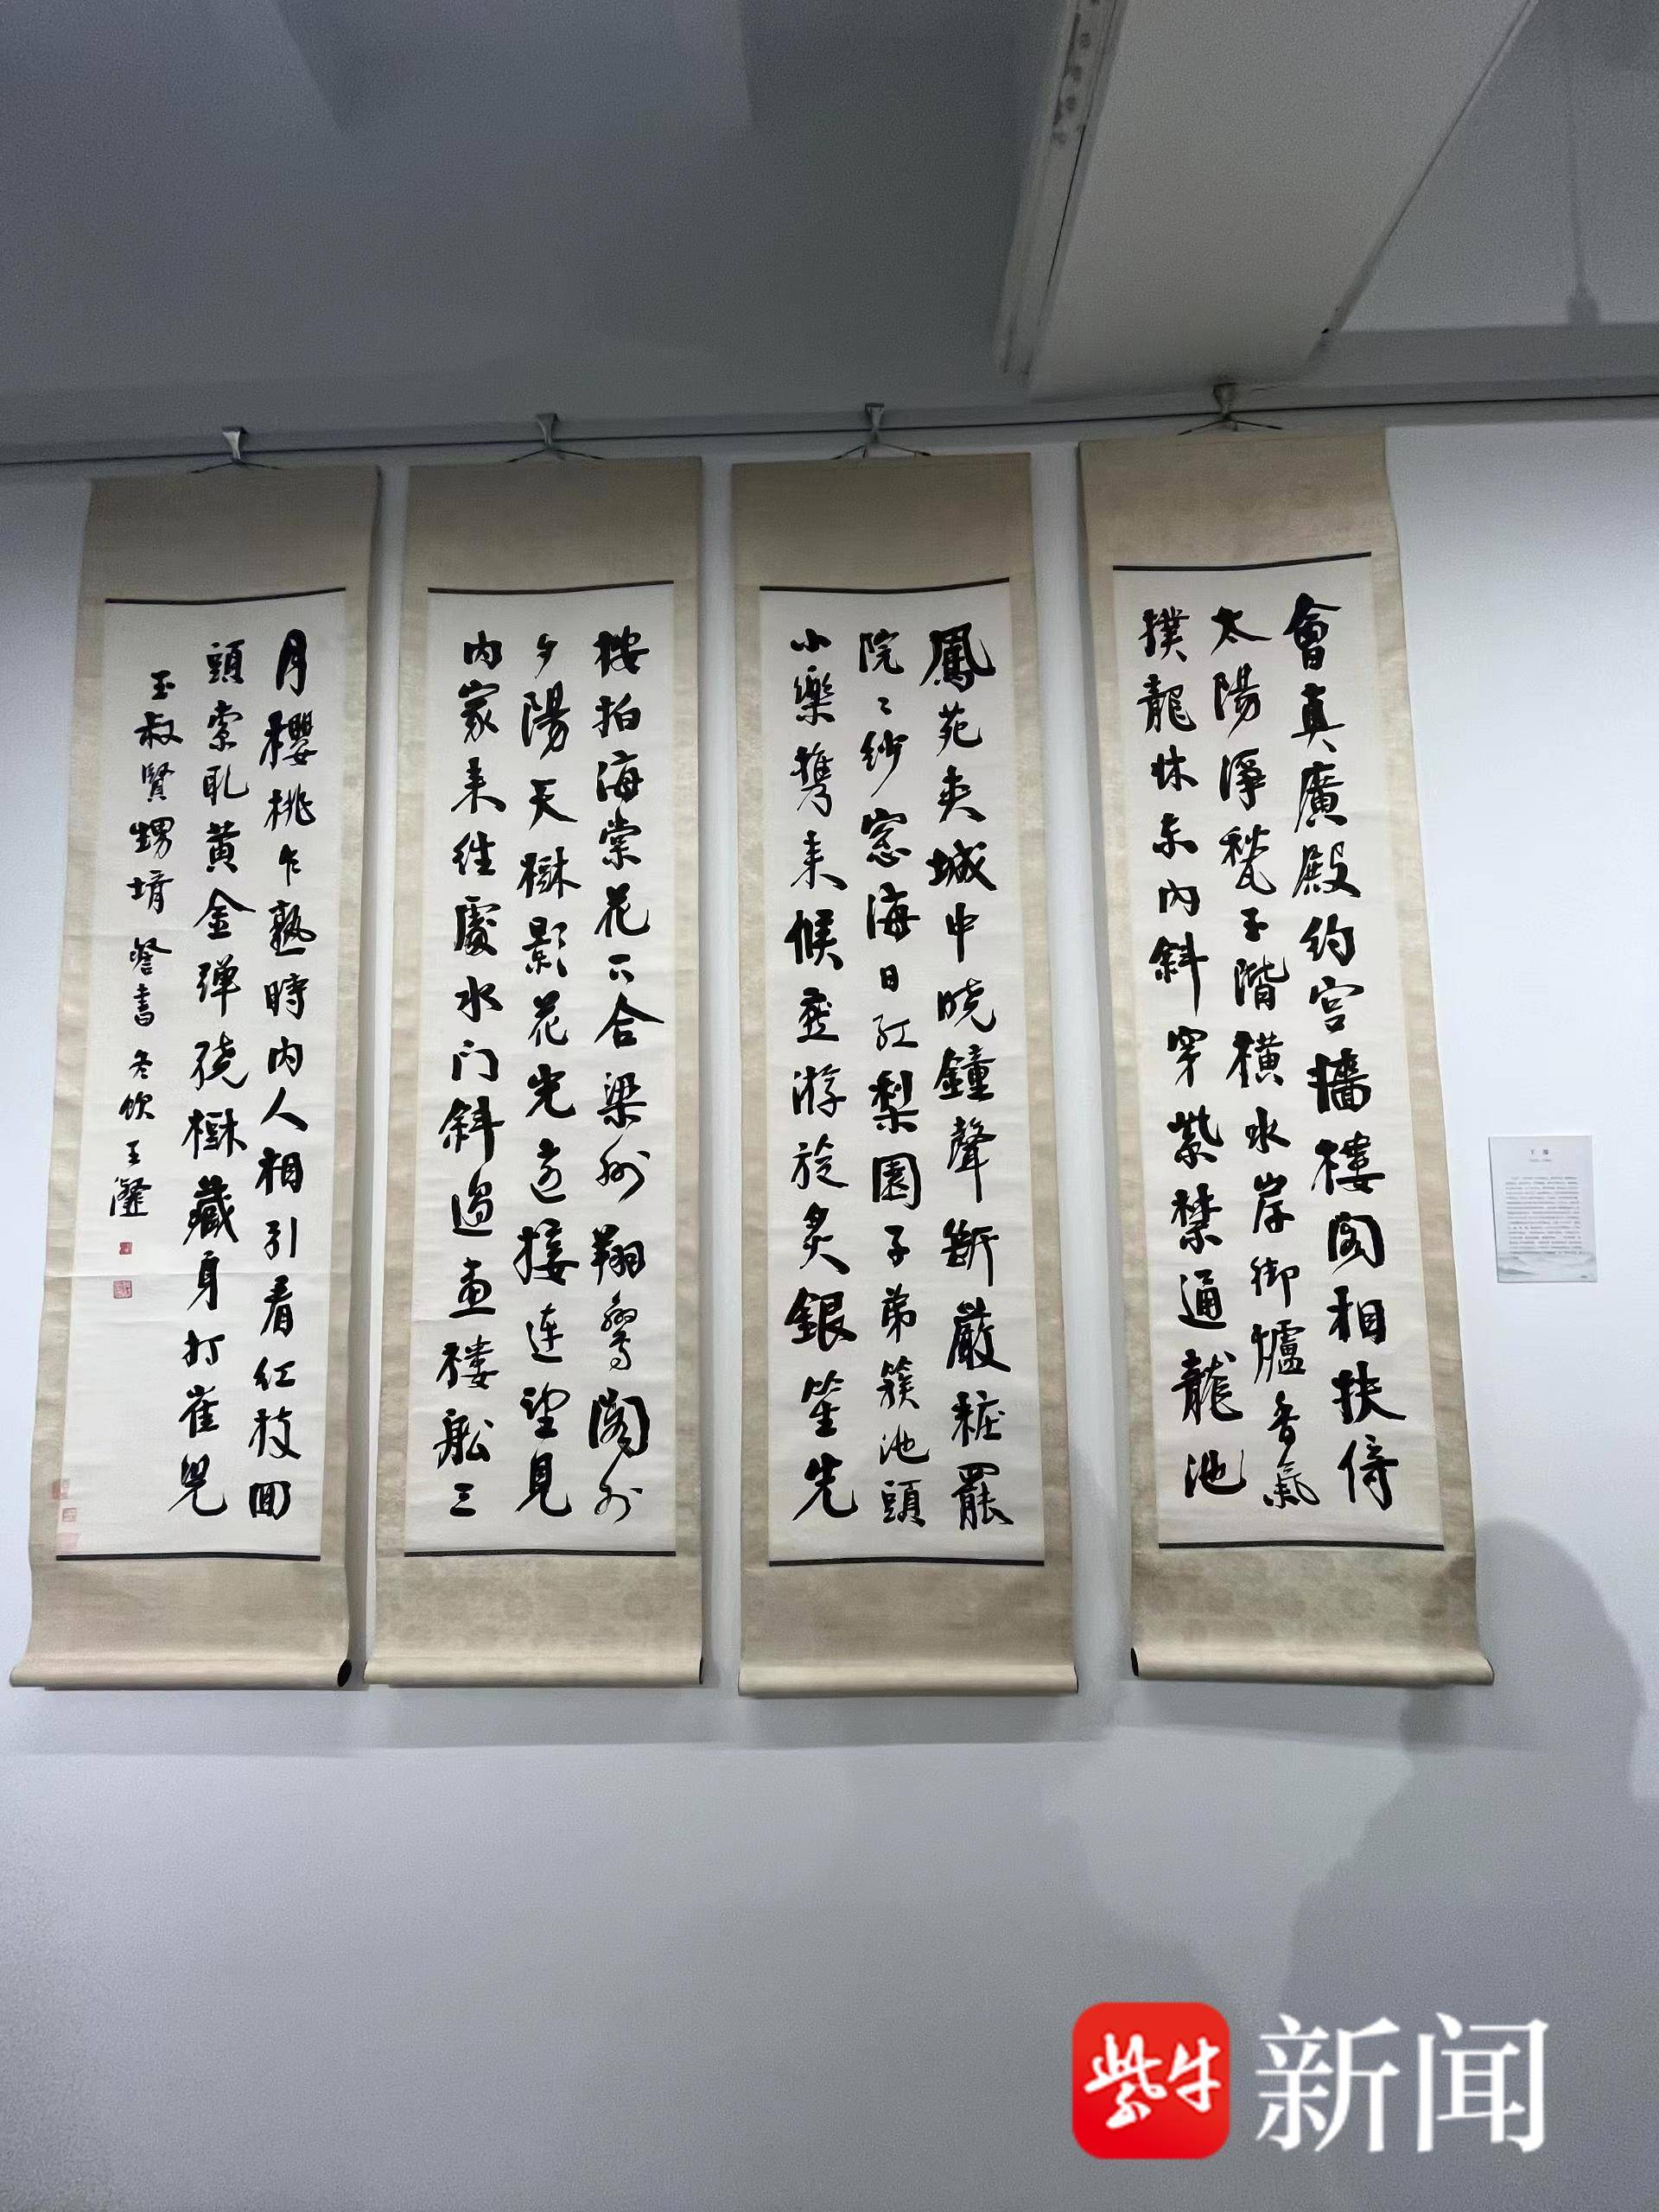 會真廣殿約宮牆樓閣相扶倚
太陽淨甃玉階橫水岸御爐香氣
撲龍牀東內斜穿紫禁通龍池
鳳苑夾城中曉鐘聲斷嚴粧罷
院〻紗窓海日紅梨園子弟簇池頭
小樂攜來候燕游旋炙銀笙先
按拍海棠花下合梁州翔鸞閣外
夕陽天樹影花光遠接連望見
內家來往處水门斜過畫樓船三
月櫻桃乍熟時內人相引看紅枝回
頭索取黃金彈繞樹藏身打雀兒
玉叔賢甥壻
書 冬飲王瀣
紫牛
新闻